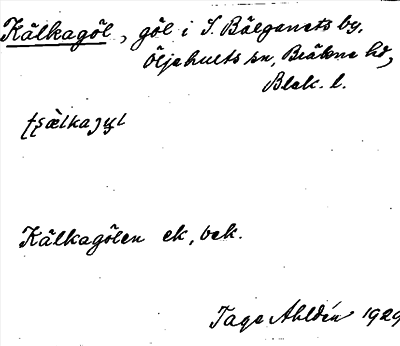 Kälkagöl, göl i S. Bälganets by,
Öljehults sn, Bräkne hd,
Blek. l.
Kälkagölen ek, bek.
Tage Ahldén 1929